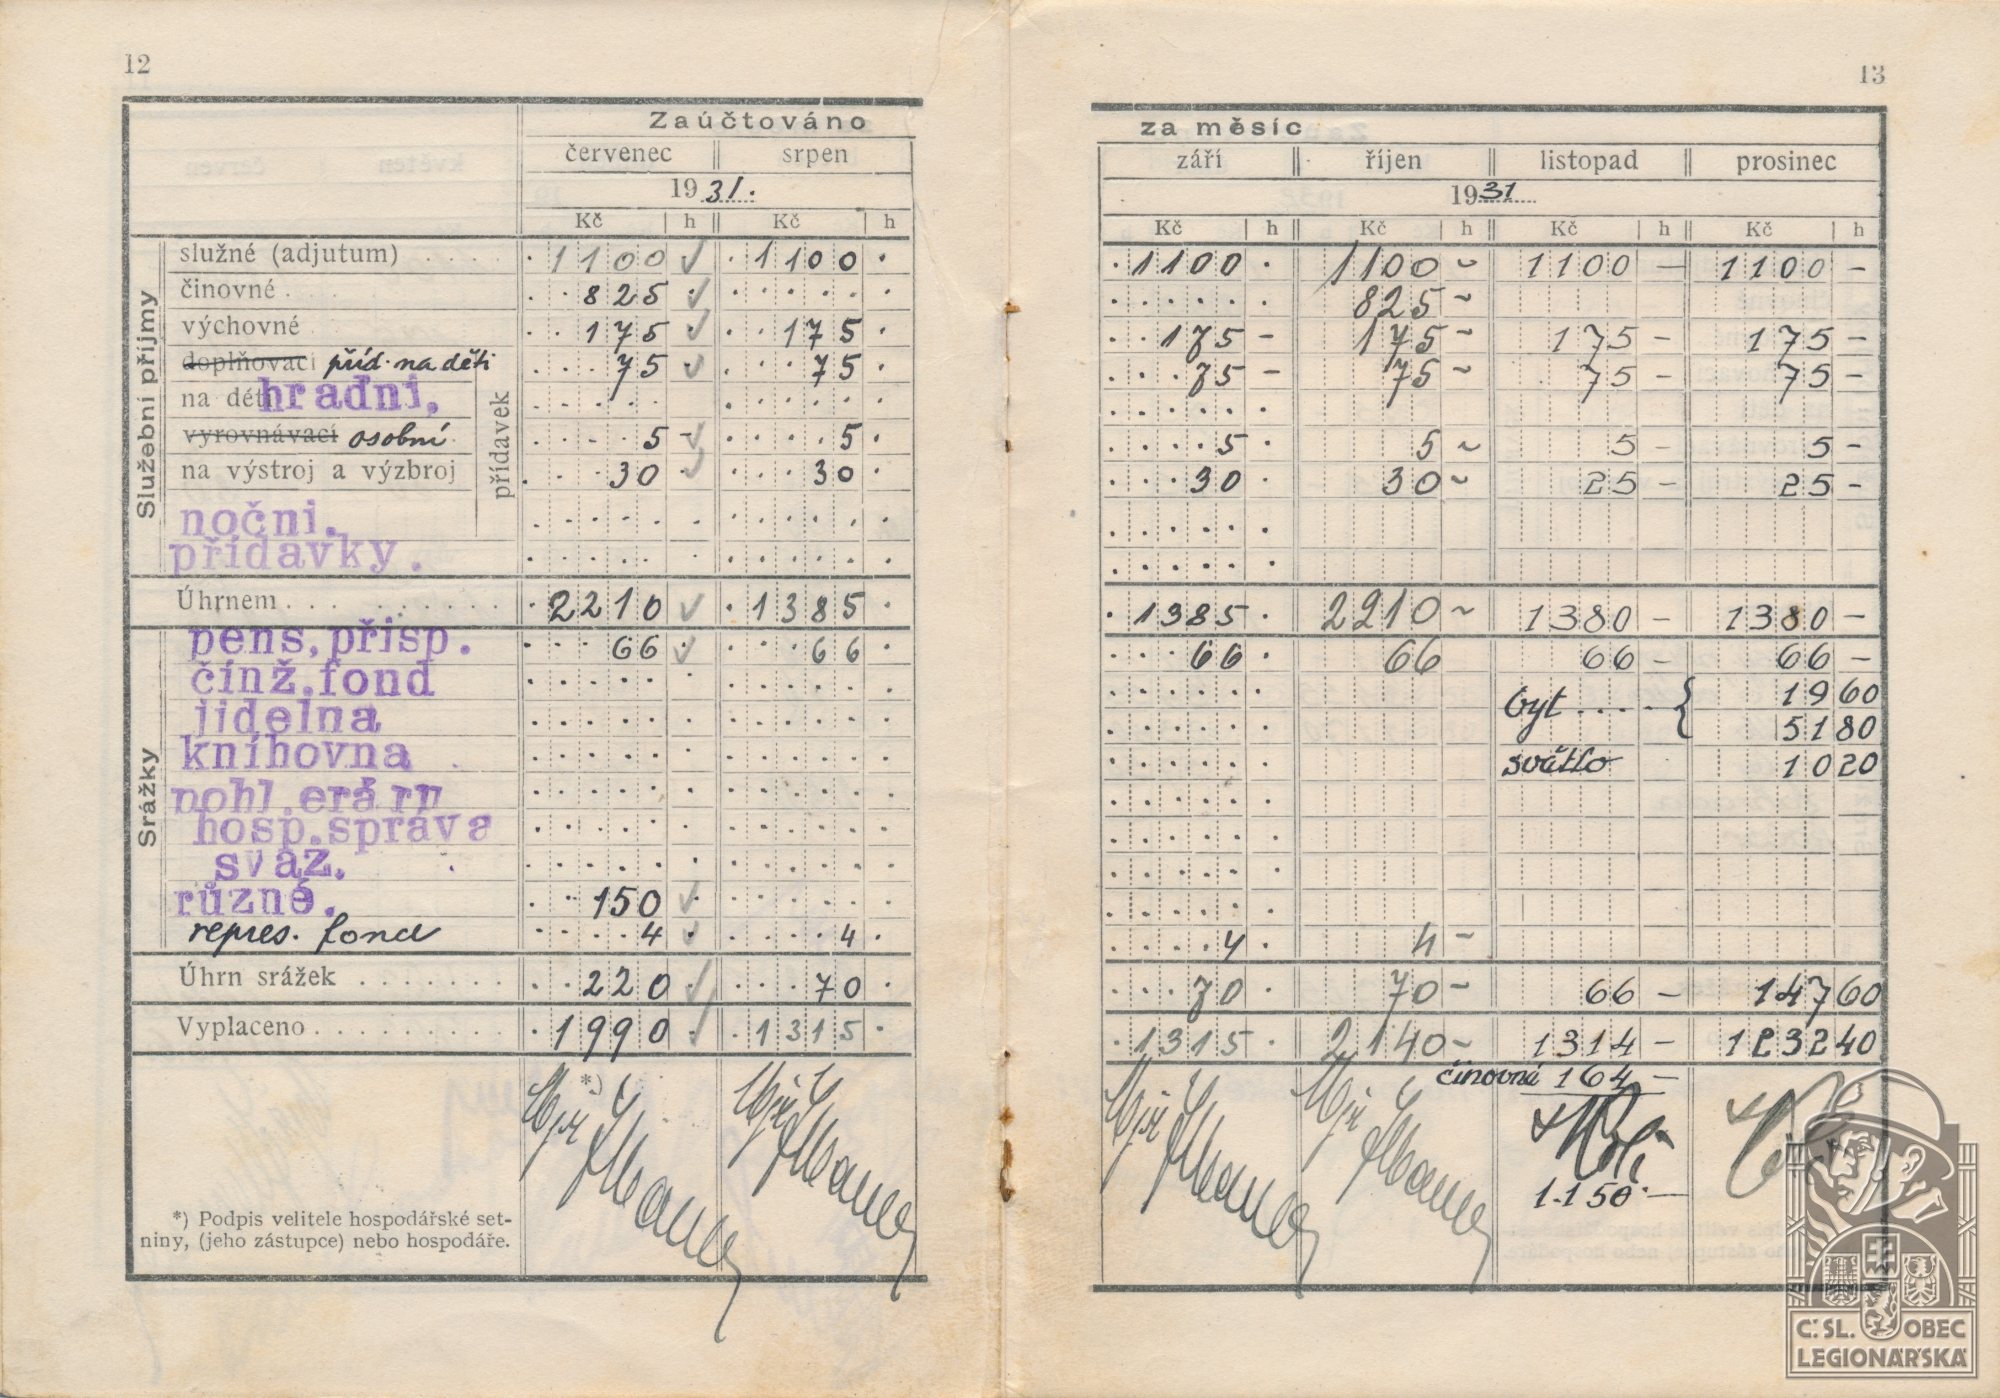 12
Zaúčtováno
červenec srpen
1931.
Kč h Kč h
Služební příjmy
služné (adjutum) . . . . 1100 1100
činovné . 825
výchovné 175 175
doplňovací příd. na děti 75 75
na děti hradní.
vyrovnávací osobní 5 - 5
na výstroj a výzbroj 30 30
přídavek
noční.
přídavky.
Úhrnem . . . 2210 1385
Srážky
pens,přisp. 66 66
činž.fond
jidelna
knihovna
pohl.erárn
hosp.správa
svaz.
různé. 150
repres. fond 4 4
Úhrn srážek . . . . . . . 220 70
Vyplaceno . . . . . . . . . 1990 1315
*)
*) Podpis velitele hospodářské set-
niny, (jeho zástupce) nebo hospodáře.
13
za měsíc
září říjen listopad prosinec
1931
Kč h Kč h Kč h Kč h
1100 1100 - 1100 - 1100 -
825 -
175 - 175 - 175 - 175 -
75 - 75 - 75 - 75 -
5 5 - 5 - 5 -
30 30 - 25 - 25 -
1385 2210 - 1380 - 1380 -
66 66 66 - 66 -
byt . . . . . { 19 60
51 80
světlo 10 20
4 4 -
70 70 - 66 - 147 60
1315 2140 - 1314 - 1232 40
činovné 164 -
1.150.-
Č.SL. OBEC
LEGIONÁŘSKÁ